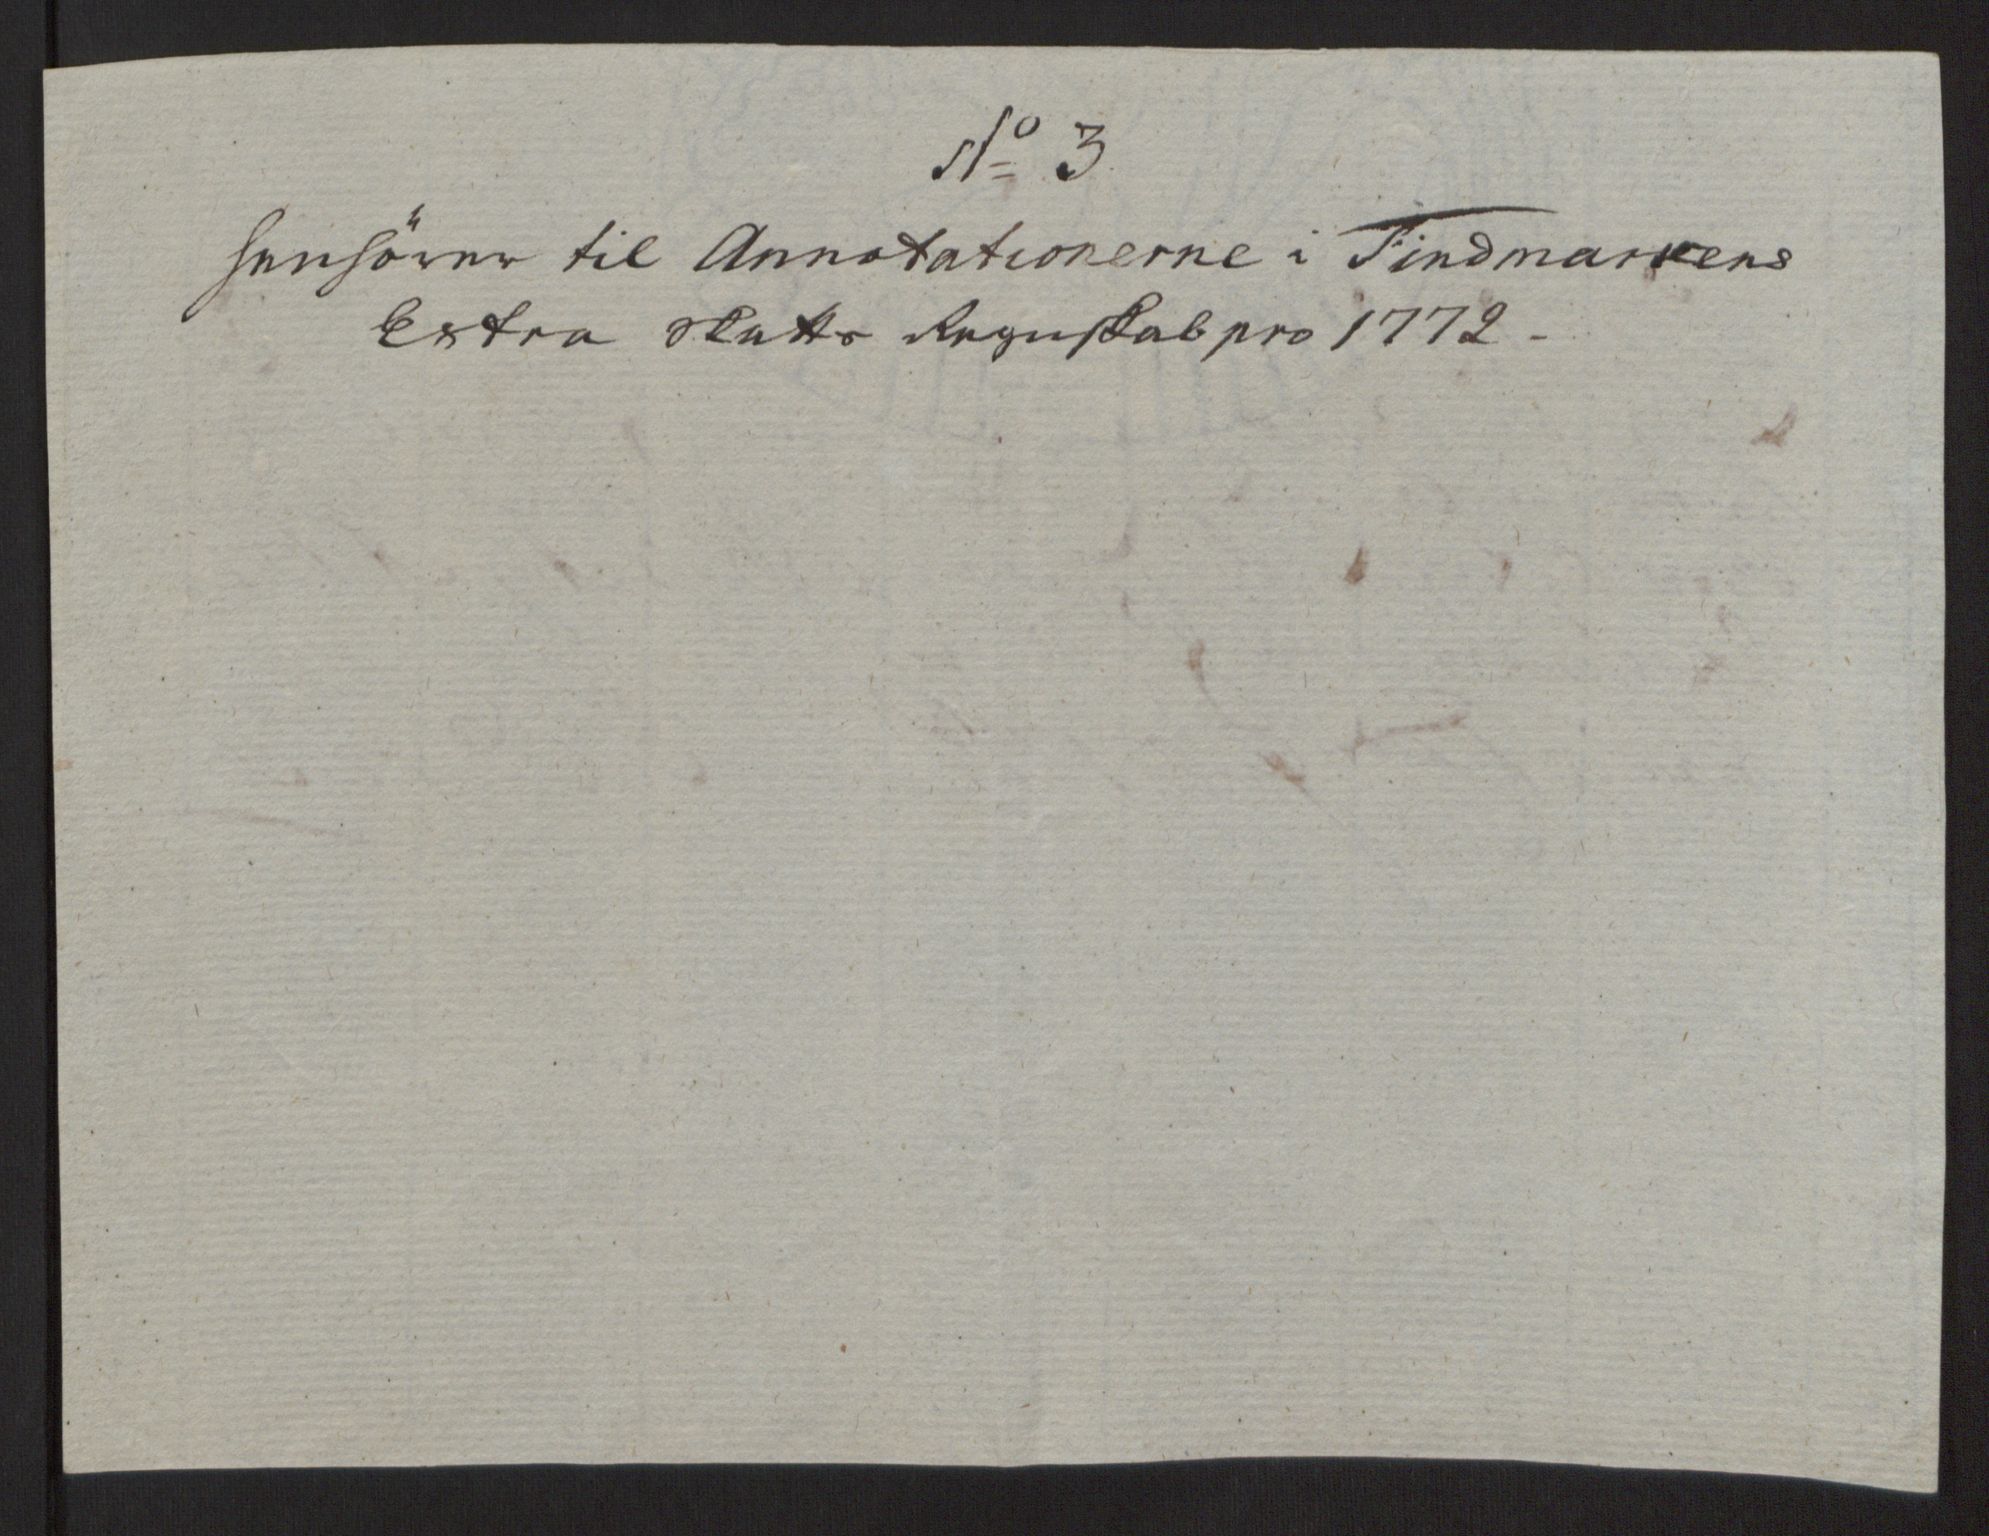 No 3
henhörer til Annotationerne i Findmarkens
Extra Skatts Regnskab pro 1772 -